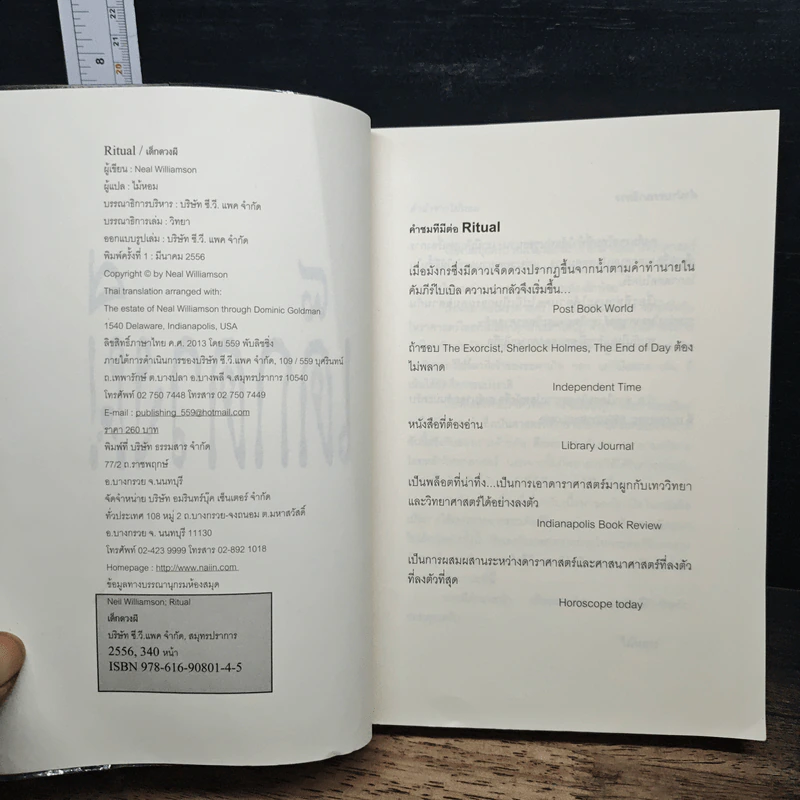 8
22
21
20
Ritual / เด็กดวงผี
ผู้เขียน : Neal Williamson
ผู้แปล : ไม้หอม
บรรณาธิการบริหาร : บริษัท ซี.วี. แพค จำกัด
บรรณาธิการเล่ม : วิทยา
ออกแบบรูปเล่ม : บริษัท ซี.วี. แพค จำกัด
พิมพ์ครั้งที่ 1 : มีนาคม 2556
Copyright © by Neal Williamson
Thai translation arranged with:
The estate of Neal Williamson through Dominic Goldman
1540 Delaware, Indianapolis, USA
ลิขสิทธิ์ภาษาไทย ค.ศ. 2013 โดย 559 พับลิชชิ่ง
ภายใต้การดำเนินการของบริษัท ซี.วี.แพค จำกัด, 109 / 559 บุศรินทน์
ถ.เทพารักษ์ ต.บางปลา อ.บางพลี จ.สมุทรปราการ 10540
โทรศัพท์ 02 750 7448 โทรสาร 02 750 7449
E-mail : publishing_559@hotmail.com
ราคา 260 บาท
พิมพ์ที่ บริษัท ธรรมสาร จำกัด
77/2 ถ.ราชพฤกษ์
อ.บางกรวย จ.นนทบุรี
จัดจำหน่าย บริษัท อมรินทร์บุ๊ค เซ็นเตอร์ จำกัด
ทั่วประเทศ 108 หมู่ 2 ถ.บางกรวย-จงถนอม ต.มหาสวัสดิ์
อ.บางกรวย จ. นนทบุรี 11130
โทรศัพท์ 02-423 9999 โทรสาร 02-892 1018
Homepage : http://www.naiin.com
ข้อมูลทางบรรณานุกรมห้องสมุด
Neil Williamson; Ritual
เด็กดวงผี
บริษัท ซี.วี.แพค จำกัด, สมุทรปราการ
2556, 340 หน้า
ISBN 978-616-90801-4-5
คำชมที่มีต่อ Ritual
เมื่อมังกรซึ่งมีดาวเจ็ดดวงปรากฏขึ้นจากน้ำตามคำทำนายใน
คัมภีร์ไบเบิล ความน่ากลัวจึงเริ่มขึ้น...
Post Book World
ถ้าชอบ The Exorcist, Sherlock Holmes, The End of Day ต้อง
ไม่พลาด
Independent Time
หนังสือที่ต้องอ่าน
Library Journal
เป็นพล็อตที่น่าทึ่ง...เป็นการเอาดาราศาสตร์มาผูกกับเทววิทยา
และวิทยาศาสตร์ได้อย่างลงตัว
Indianapolis Book Review
เป็นการผสมผสานระหว่างดาราศาสตร์และศาสนาศาสตร์ที่ลงตัว
ที่ลงตัวที่สุด
Horoscope today